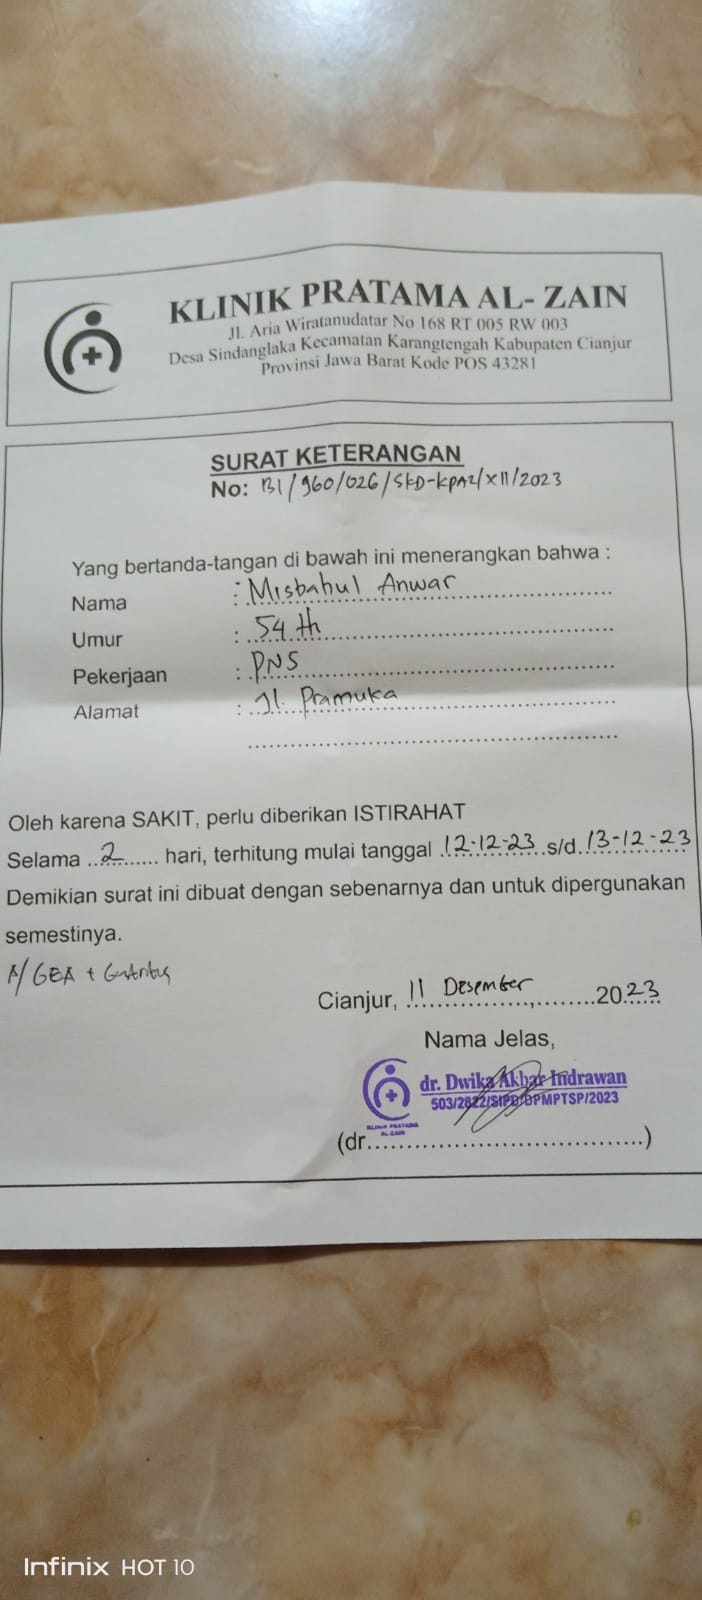 KLINIK PRATAMA AL- ZAIN
Jl. Aria Wiratanudatar No 168 RT 005 RW 003
Desa Sindanglaka Kecamatan Karangtengah Kabupaten Cianjur
Provinsi Jawa Barat Kode POS 43281
SURAT KETERANGAN
No: B1/960/026/SKD-KPAZ/XII/2023
Yang bertanda-tangan di bawah ini menerangkan bahwa :
Nama : Misbahul Anwar
Umur : 54 th
Pekerjaan : PNS
Alamat : Jl. Pramuka
Oleh karena SAKIT, perlu diberikan ISTIRAHAT
Selama 2 hari, terhitung mulai tanggal 12-12-23 s/d. 13-12-23
Demikian surat ini dibuat dengan sebenarnya dan untuk dipergunakan
semestinya.
A/ GEA +
Cianjur, 11 Desember 2023
Nama Jelas,
dr. Dwika Akbar Indrawan
503/2822/SIPD/DPMPTSP/2023
KLINIK PRATAMA
AL-ZAIN
(dr.....................................)
Infinix HOT 10